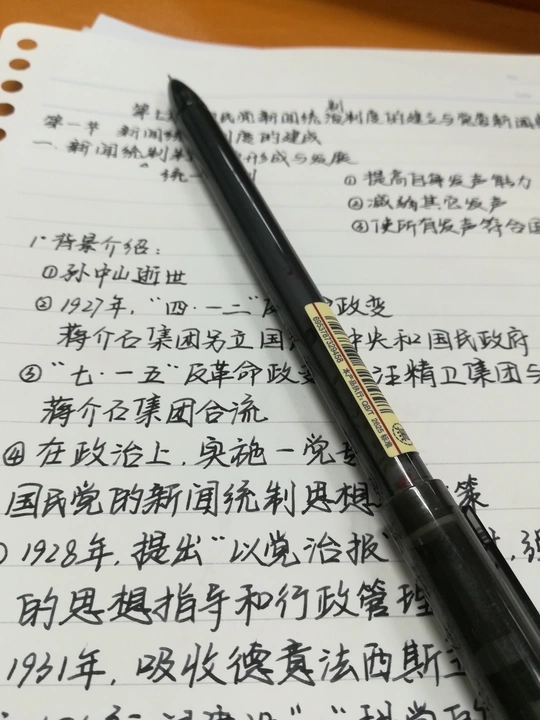 国民党新闻统制制度的建立与党营新闻
第一节 新闻统制制度的建成
一、新闻统制 形成与发展
统一
① 提高自身发声能力
② 减弱其它发声
③ 使所有发声符合国
1° 背景介绍：
① 孙中山逝世
② 1927年，“四·一二” 政变
蒋介石集团另立国 中央和国民政府
③ “七·一五”反革命政变 汪精卫集团与
蒋介石集团合流
④ 在政治上，实施一党专
国民党的新闻统制思想 策
1928年，提出“以党治报”
的思想指导和行政管理
1931年，吸收德意法西斯主
6953787329458
执行: QB/T 2625